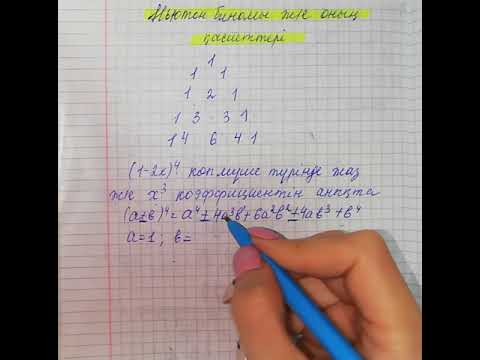 Ньютон биномы және оның
қасиеттері
1
1 1
1 2 1
1 3 3 1
1 4 6 4 1
(1-2x)⁴ көпмүше түрінде жаз
және x³ коэффициентін анықта
(a±b)⁴=a⁴±4a³b+6a²b²±4ab³+b⁴
a=1; b=